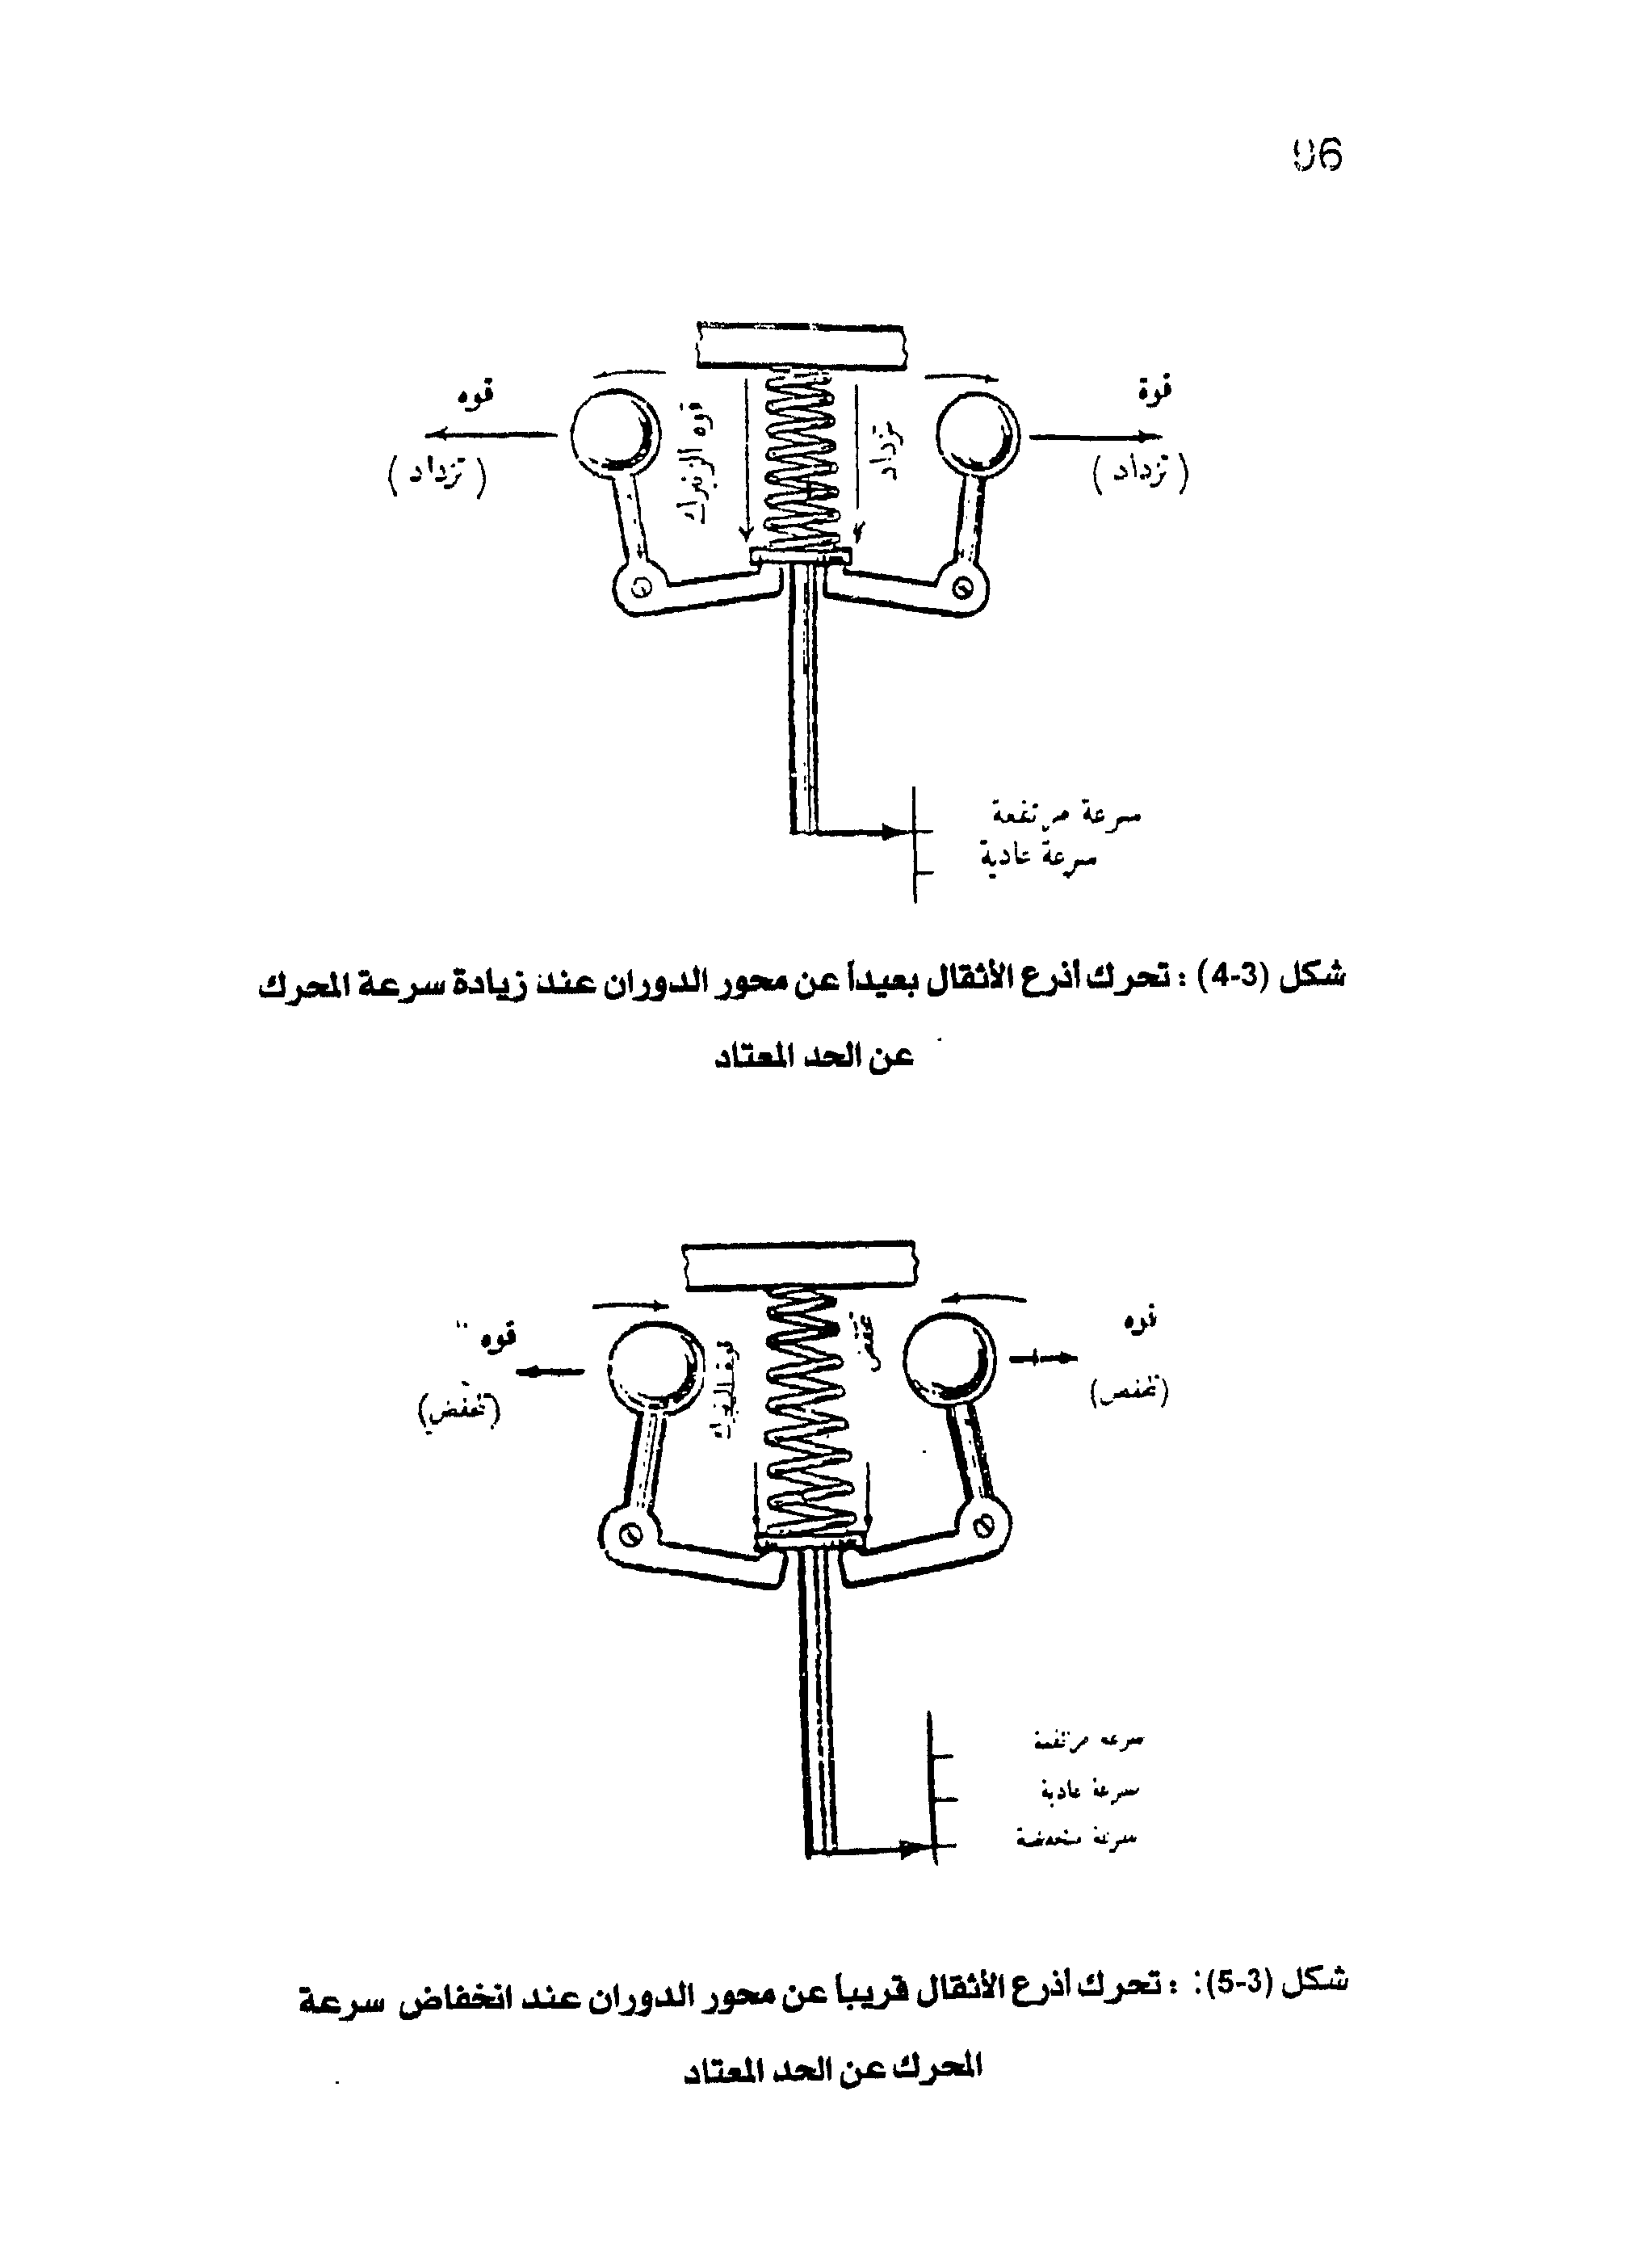 96
قوه
قوة
(تزداد)
(تزداد)
قوه الزنبرك
تزداد
سرعة مرتفعة
سرعة عادية
شكل (3-4) : تحرك أذرع الأثقال بعيداً عن محور الدوران عند زيادة سرعة المحرك
عن الحد المعتاد
قوه
قوه
(تخفض)
سرعه مرتفعة
سرعة عادية
سرعة منخفضة
شكل (3-5): : تحرك أذرع الأثقال قريباً عن محور الدوران عند انخفاض سرعة
المحرك عن الحد المعتاد